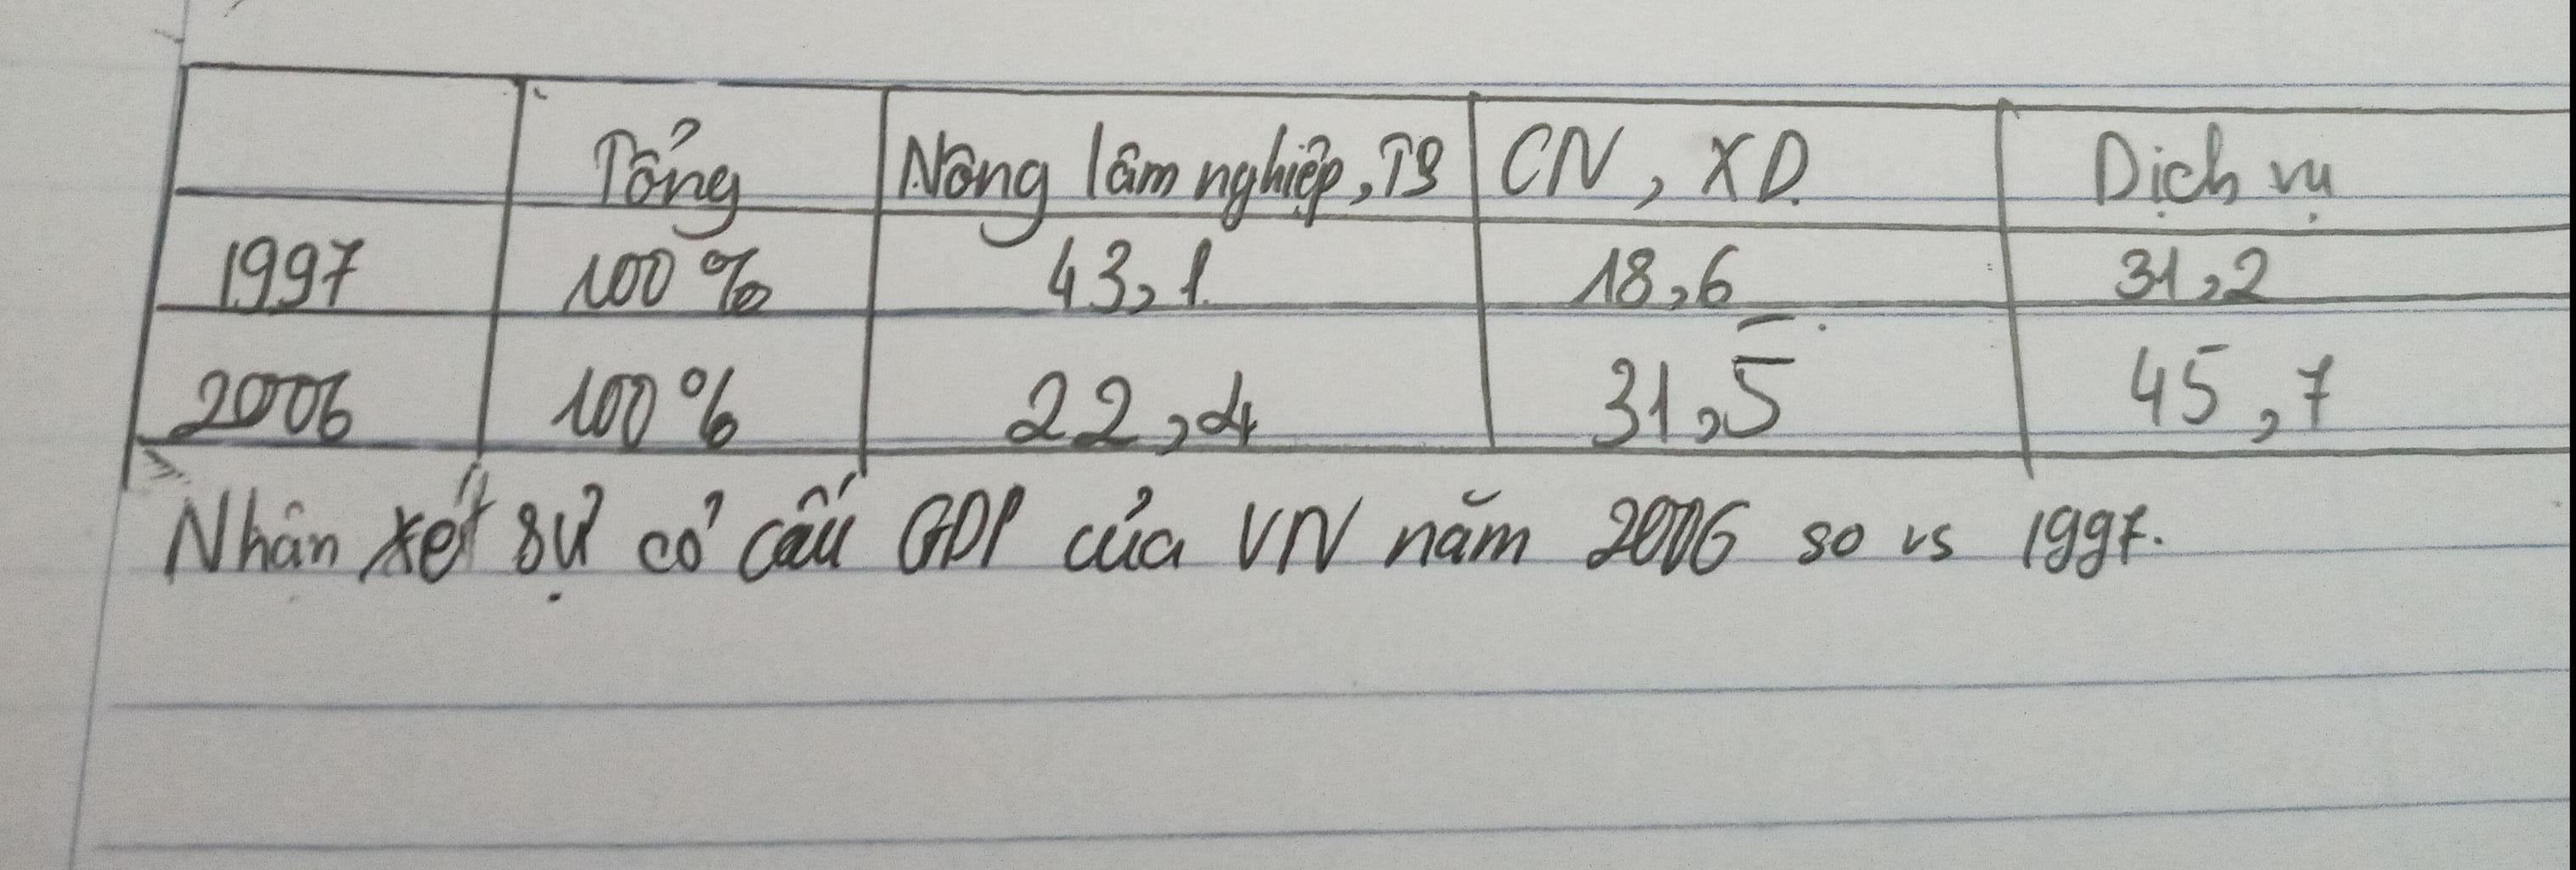 Tổng Nông lâm nghiệp, TS CN, XD Dịch vụ
1997 100% 43,1 18,6 31,2
2006 100% 22,4 31,5 45,7
Nhận xét sự cơ cấu GDP của VN năm 2006 so vs 1997.